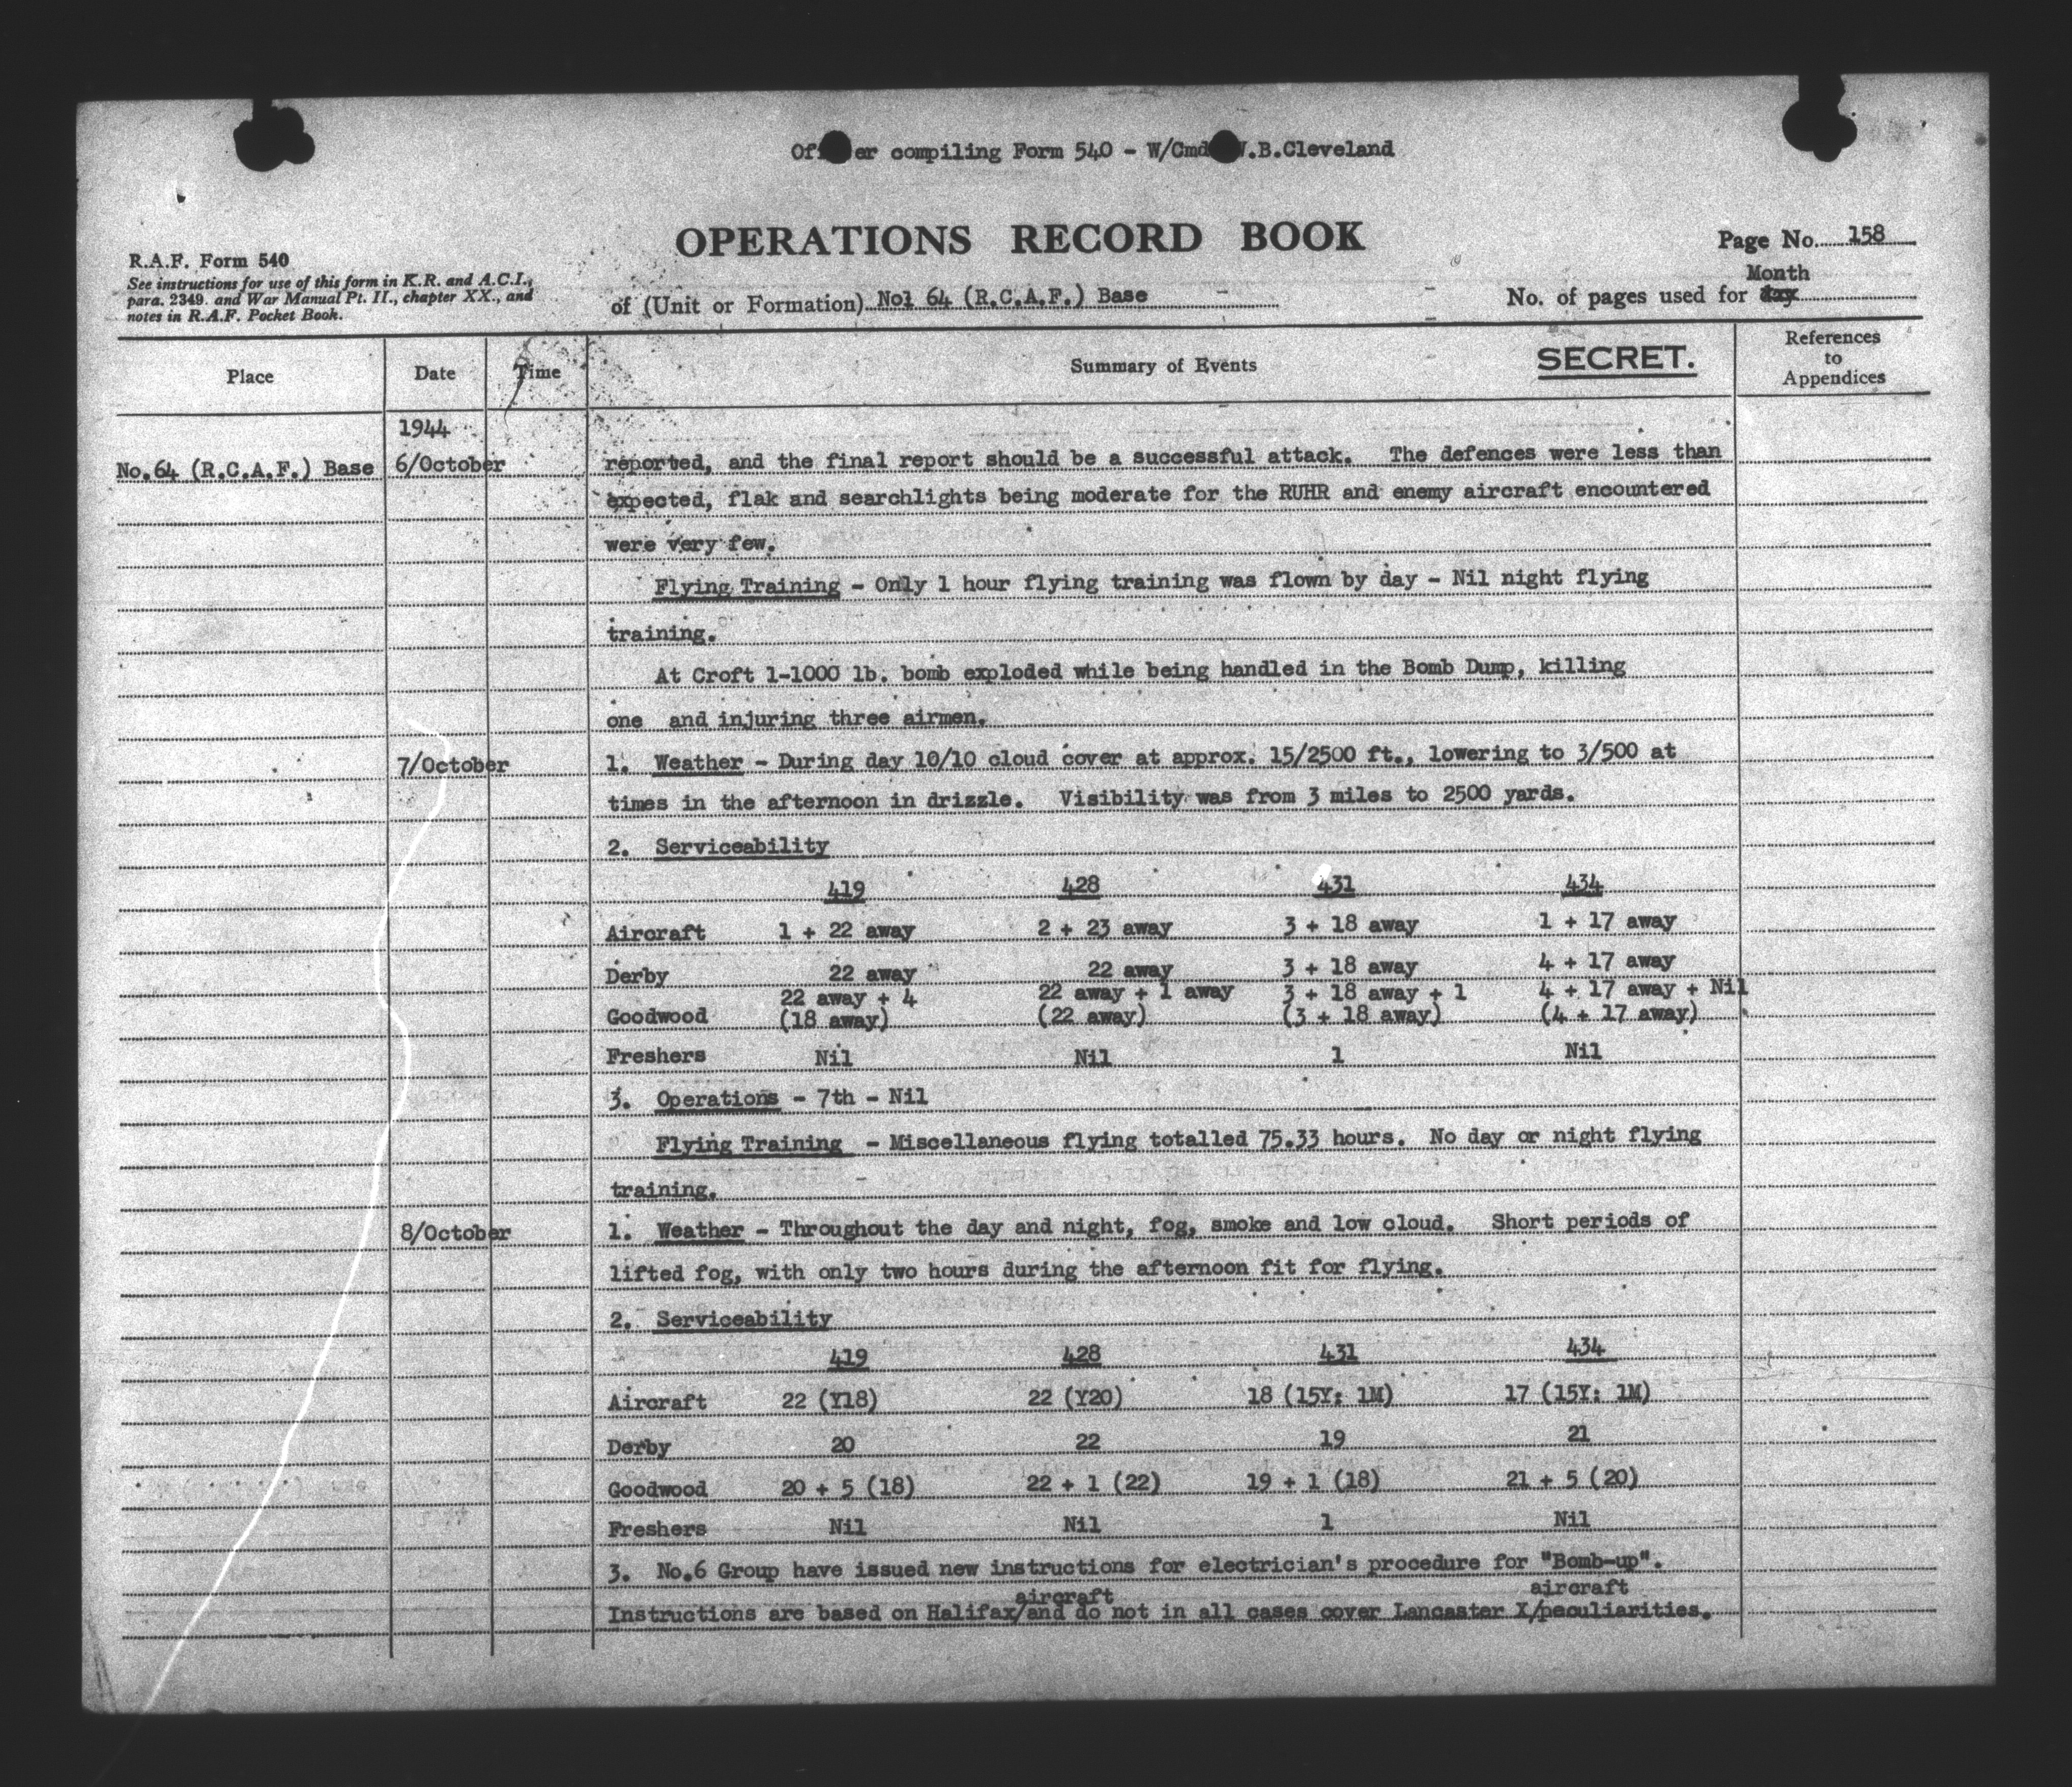 Officer compiling Form 540 - W/Cmdr W.B.Cleveland
OPERATIONS RECORD BOOK
Page No. 158
R.A.F. Form 540
See instructions for use of this form in K.R. and A.C.I.,
para. 2349. and War Manual Pt. II., chapter XX., and
notes in R.A.F. Pocket Book.
of (Unit or Formation) No1 64 (R.C.A.F.) Base
Month
No. of pages used for day
Place Date Time Summary of Events SECRET. References to Appendices
1944
No.64 (R.C.A.F.) Base 6/October reported, and the final report should be a successful attack. The defences were less than
expected, flak and searchlights being moderate for the RUHR and enemy aircraft encountered
were very few.
Flying Training - Only 1 hour flying training was flown by day - Nil night flying
training.
At Croft 1-1000 lb. bomb exploded while being handled in the Bomb Dump, killing
one and injuring three airmen.
7/October 1. Weather - During day 10/10 cloud cover at approx. 15/2500 ft., lowering to 3/500 at
times in the afternoon in drizzle. Visibility was from 3 miles to 2500 yards.
2. Serviceability
419 428 431 434
Aircraft 1 + 22 away 2 + 23 away 3 + 18 away 1 + 17 away
Derby 22 away 22 away 3 + 18 away 4 + 17 away
22 away + 4 22 away + 1 away 3 + 18 away + 1 4 + 17 away + Nil
Goodwood (18 away) (22 away) (3 + 18 away) (4 + 17 away)
Freshers Nil Nil 1 Nil
3. Operations - 7th - Nil
Flying Training - Miscellaneous flying totalled 75.33 hours. No day or night flying
training.
8/October 1. Weather - Throughout the day and night, fog, smoke and low cloud. Short periods of
lifted fog, with only two hours during the afternoon fit for flying.
2. Serviceability
419 428 431 434
Aircraft 22 (Y18) 22 (Y20) 18 (15Y: 1M) 17 (15Y: 1M)
Derby 20 22 19 21
Goodwood 20 + 5 (18) 22 + 1 (22) 19 + 1 (18) 21 + 5 (20)
Freshers Nil Nil 1 Nil
3. No.6 Group have issued new instructions for electrician's procedure for "Bomb-up".
aircraft aircraft
Instructions are based on Halifax/and do not in all cases cover Lancaster X/peculiarities.